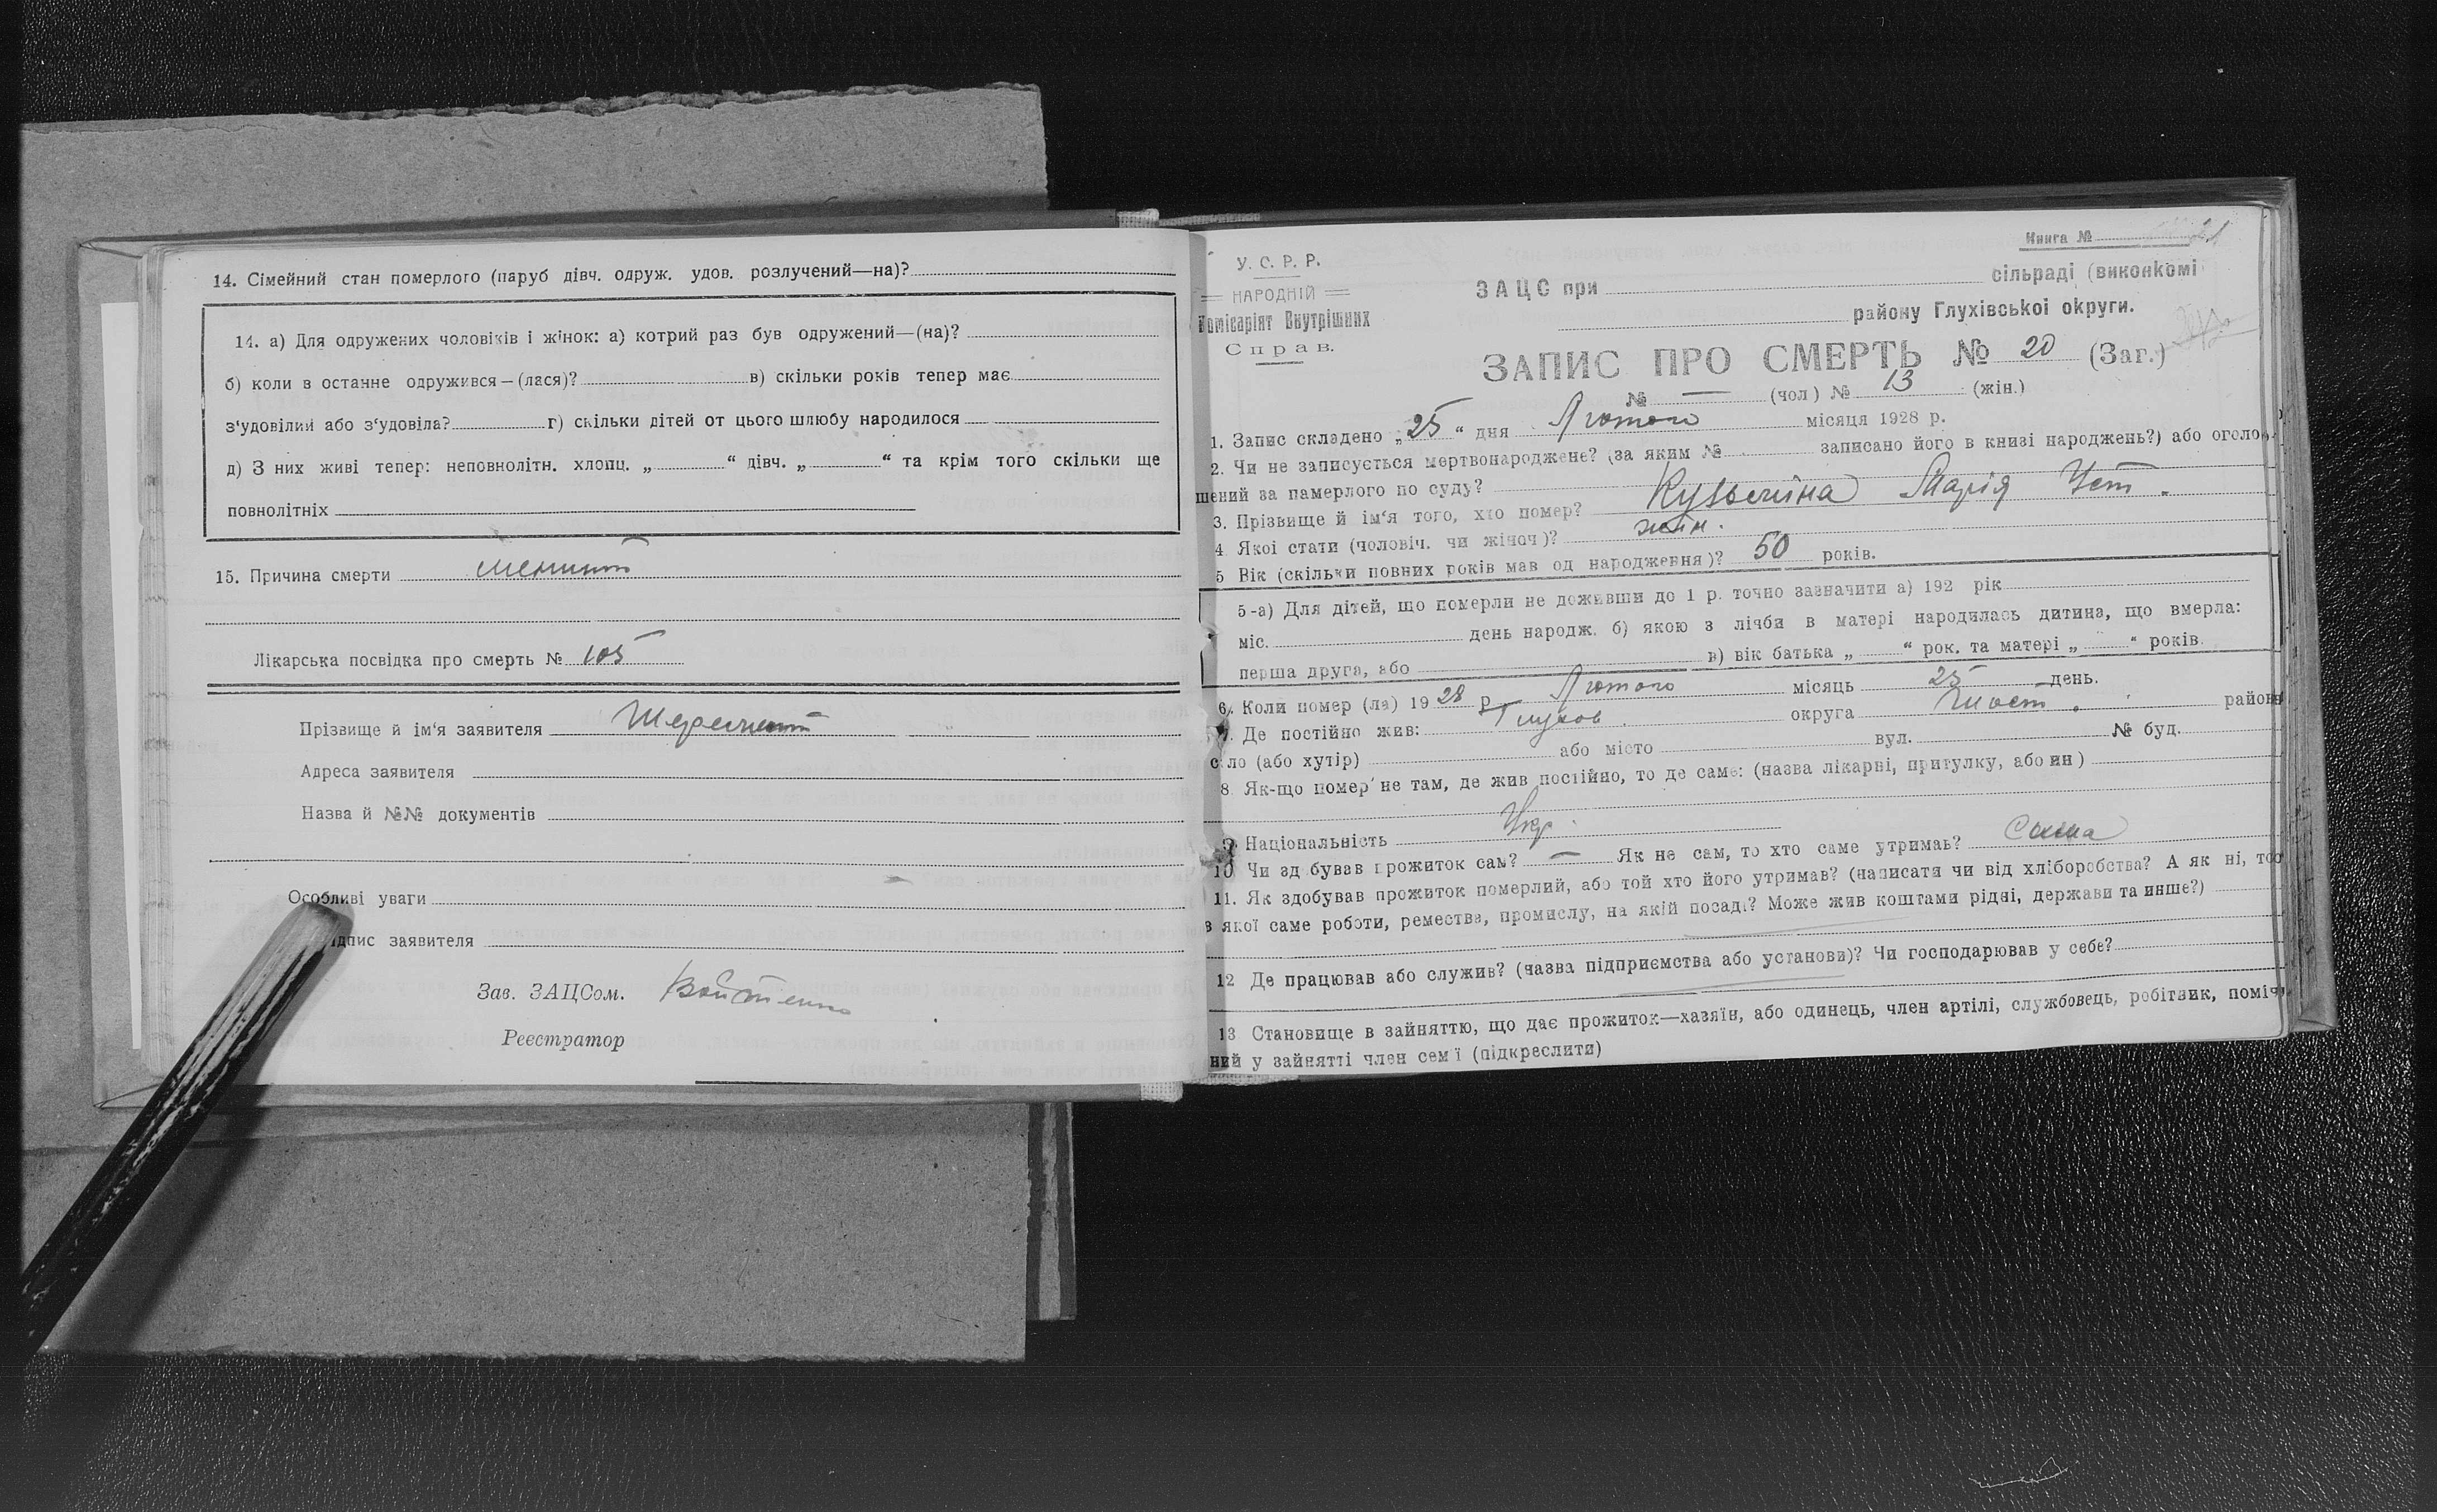 14. Сімейний стан померлого (паруб дівч. одруж. удов. розлучений—на)?
14. а) Для одружених чоловіків і жінок: а) котрий раз був одружений—(на)?
б) коли в останне одружився—(лася)? в) скільки років тепер має
з'удовілий або з'удовіла? г) скільки дітей от цього шлюбу народилося
д) З них живі тепер: неповнолітн. хлопц. „ “ дівч. „ “ та крім того скільки ще
повнолітніх
15. Причина смерти менинт
Лікарська посвідка про смерть № 105
Прізвище й ім'я заявителя
Адреса заявителя
Назва й №№ документів
Особливі уваги —
ідпис заявителя
Зав. ЗАЦСом. Войтенко
Реєстратор
Книга № 21
У. С. Р. Р.
НАРОДНІЙ
Комісаріят Внутрішних
Справ.
ЗАЦС при сільраді (виконкомі
району Глухівської округи.
ЗАПИС ПРО СМЕРТЬ № 20 (Заг.)
№ — (чол) № 13 (жін.)
1. Запис складено „25“ дня Лютого місяця 1928 р.
2. Чи не записується мертвонароджене? (за яким № записано його в книзі народжень?) або оголо
шений за памерлого по суду?
3. Прізвище й ім'я того, хто помер? Кузьміна Марія Уст.
4 Якої стати (чоловіч. чи жіноч)? жін.
5 Вік (скільки повних років мав од народження)? 50 років.
5-а) Для дітей, що померли не доживши до 1 р. точно зазначити а) 192 рік
міс. день народж. б) якою з лічби в матері народилась дитина, що вмерла:
перша друга, або в) вік батька „ “ рок. та матері „ “ років.
6. Коли помер (ла) 1928 р. Лютого місяць 25 день.
Де постійно жив: Глухов округа район
село (або хутір) або місто вул. № буд.
8. Як-що помер не там, де жив постійно, то де саме: (назва лікарні, притулку, або ин)
9. Національність Укр.
10 Чи здобував прожиток сам? — Як не сам, то хто саме утримав?
11. Як здобував прожиток померлий, або той хто його утримав? (написати чи від хліборобства? А як ні, то
з якої саме роботи, ремества, промислу, на якій посаді? Може жив коштами рідні, держави та инше?)
12 Де працював або служив? (назва підприємства або установи)? Чи господарював у себе?
13 Становище в зайняттю, що дає прожиток—хазяїн, або одинець, член артілі, службовець, робітник, поміч
ний у зайнятті член сем'ї (підкреслити)